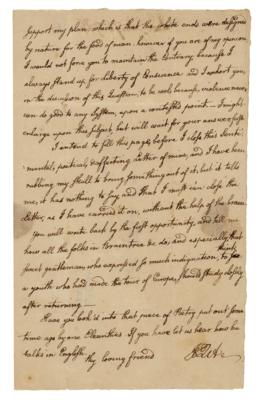 support my plan, which is that the white ends were designed
by nature for the food of man. however if you are of my opinion
I would not for you to maintain the Contrary, because I
always stand up for liberty of Conscience and I exhort you,
in the discussion of this Question, to be cool, because, violence never
can do good to any System, upon a contested point. I might
enlarge upon this subject, but will wait for your answer first
I intend to fill this page, before I close this Senti-
mental, poetical, & affecting letter of mine, and I have been
rubbing my skull to bring something out of it, but it tells
me, it has nothing to say, and think I must even close the
letter, as I have carried it on, without the help of the brain
You will wrote back by the first opportunity, and tell me
how all the folks in Braintree &c do, and especially that
great gentleman who expressed so much indignation, to
a youth who had made the tour of Europe, should study
after returning
Have you look'd into that piece of Poetry put out some
time ago by one Cleanthes. If you have let us hear how he
talks in English.
thy loving friend